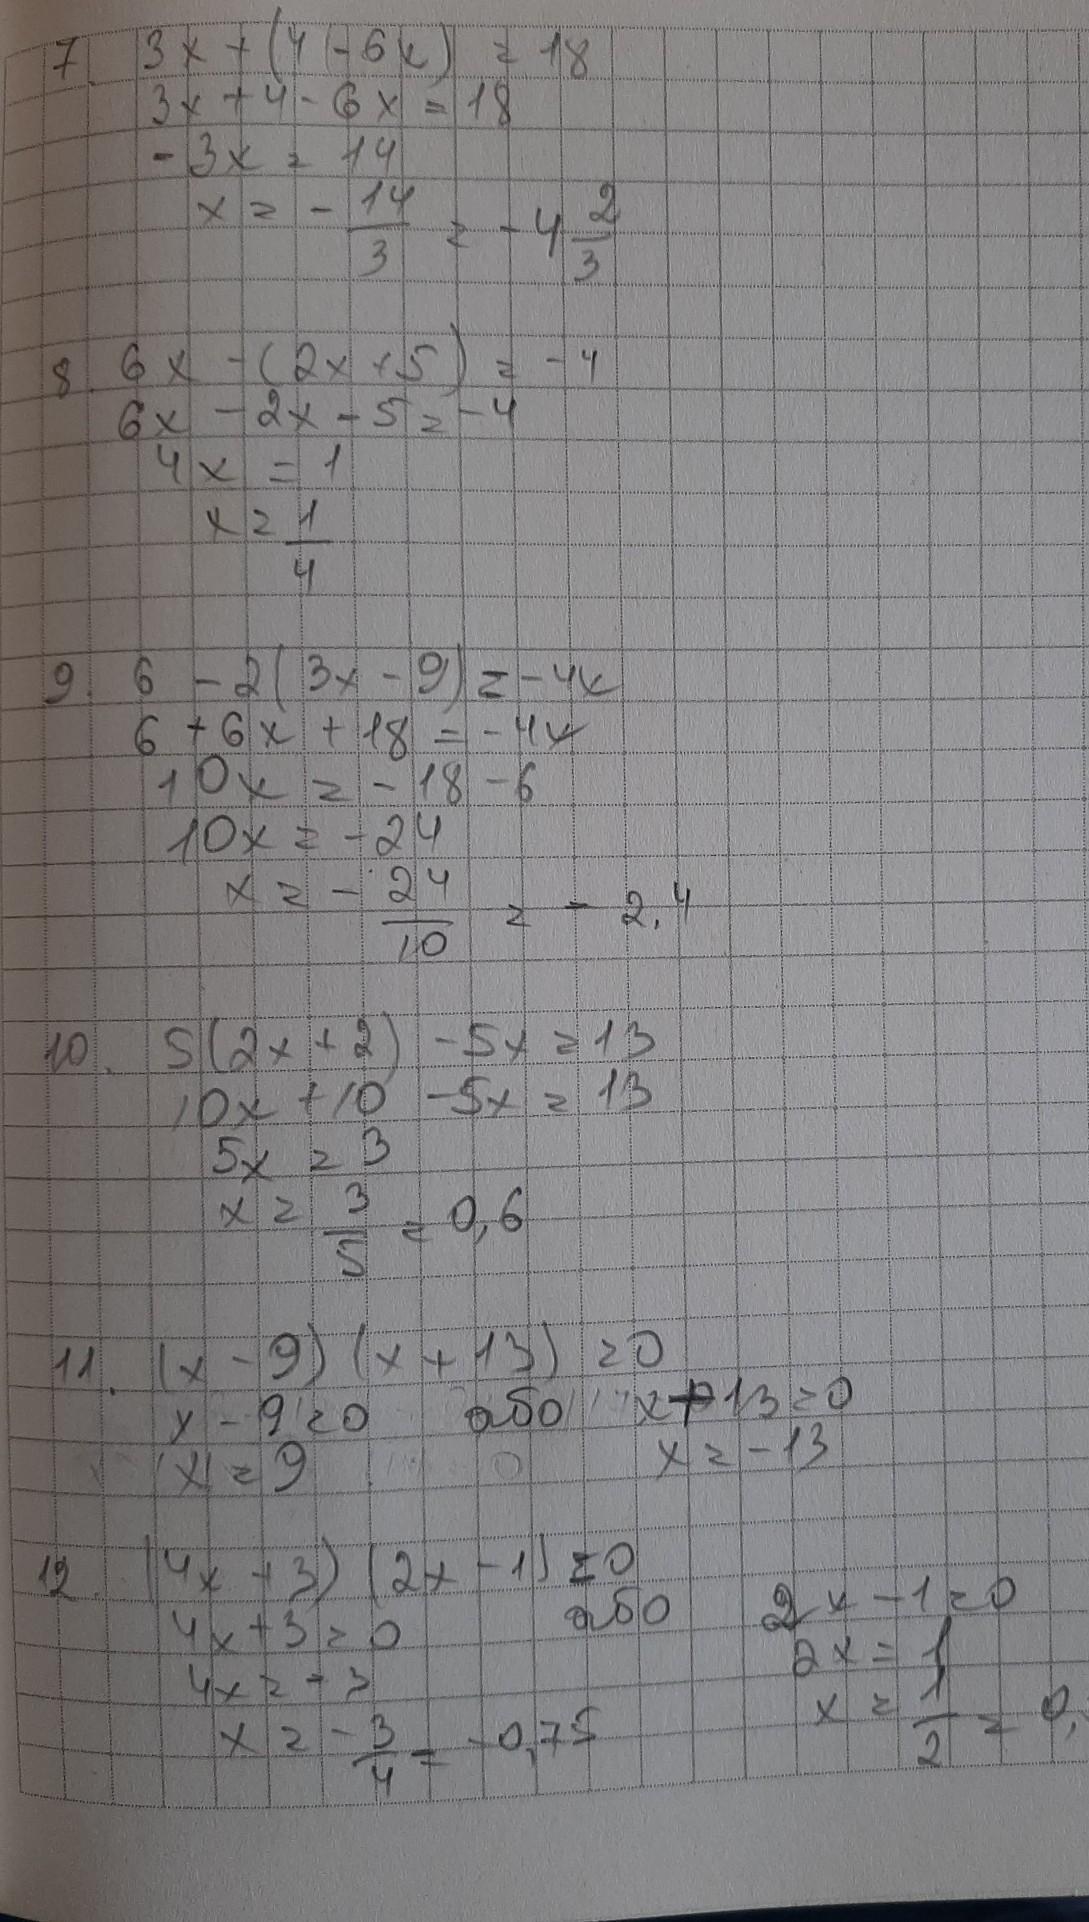 7. 3x + (4 - 6x) = 18
3x + 4 - 6x = 18
- 3x = 14
x = - 14/3 = - 4 2/3
8. 6x - (2x + 5) = - 4
6x - 2x - 5 = - 4
4x = 1
x = 1/4
9. 6 - 2(3x - 9) = - 4x
6 + 6x + 18 = - 4x
10x = - 18 - 6
10x = - 24
x = - 24/10 = - 2,4
10. 5(2x + 2) - 5x = 13
10x + 10 - 5x = 13
5x = 3
x = 3/5 = 0,6
11. (x - 9) (x + 13) = 0
x - 9 = 0 або x + 13 = 0
x = 9 x = - 13
12. (4x + 3) (2x - 1) = 0
4x + 3 = 0 або 2x - 1 = 0
4x = - 3 2x = 1
x = - 3/4 = - 0,75 x = 1/2 = 0,